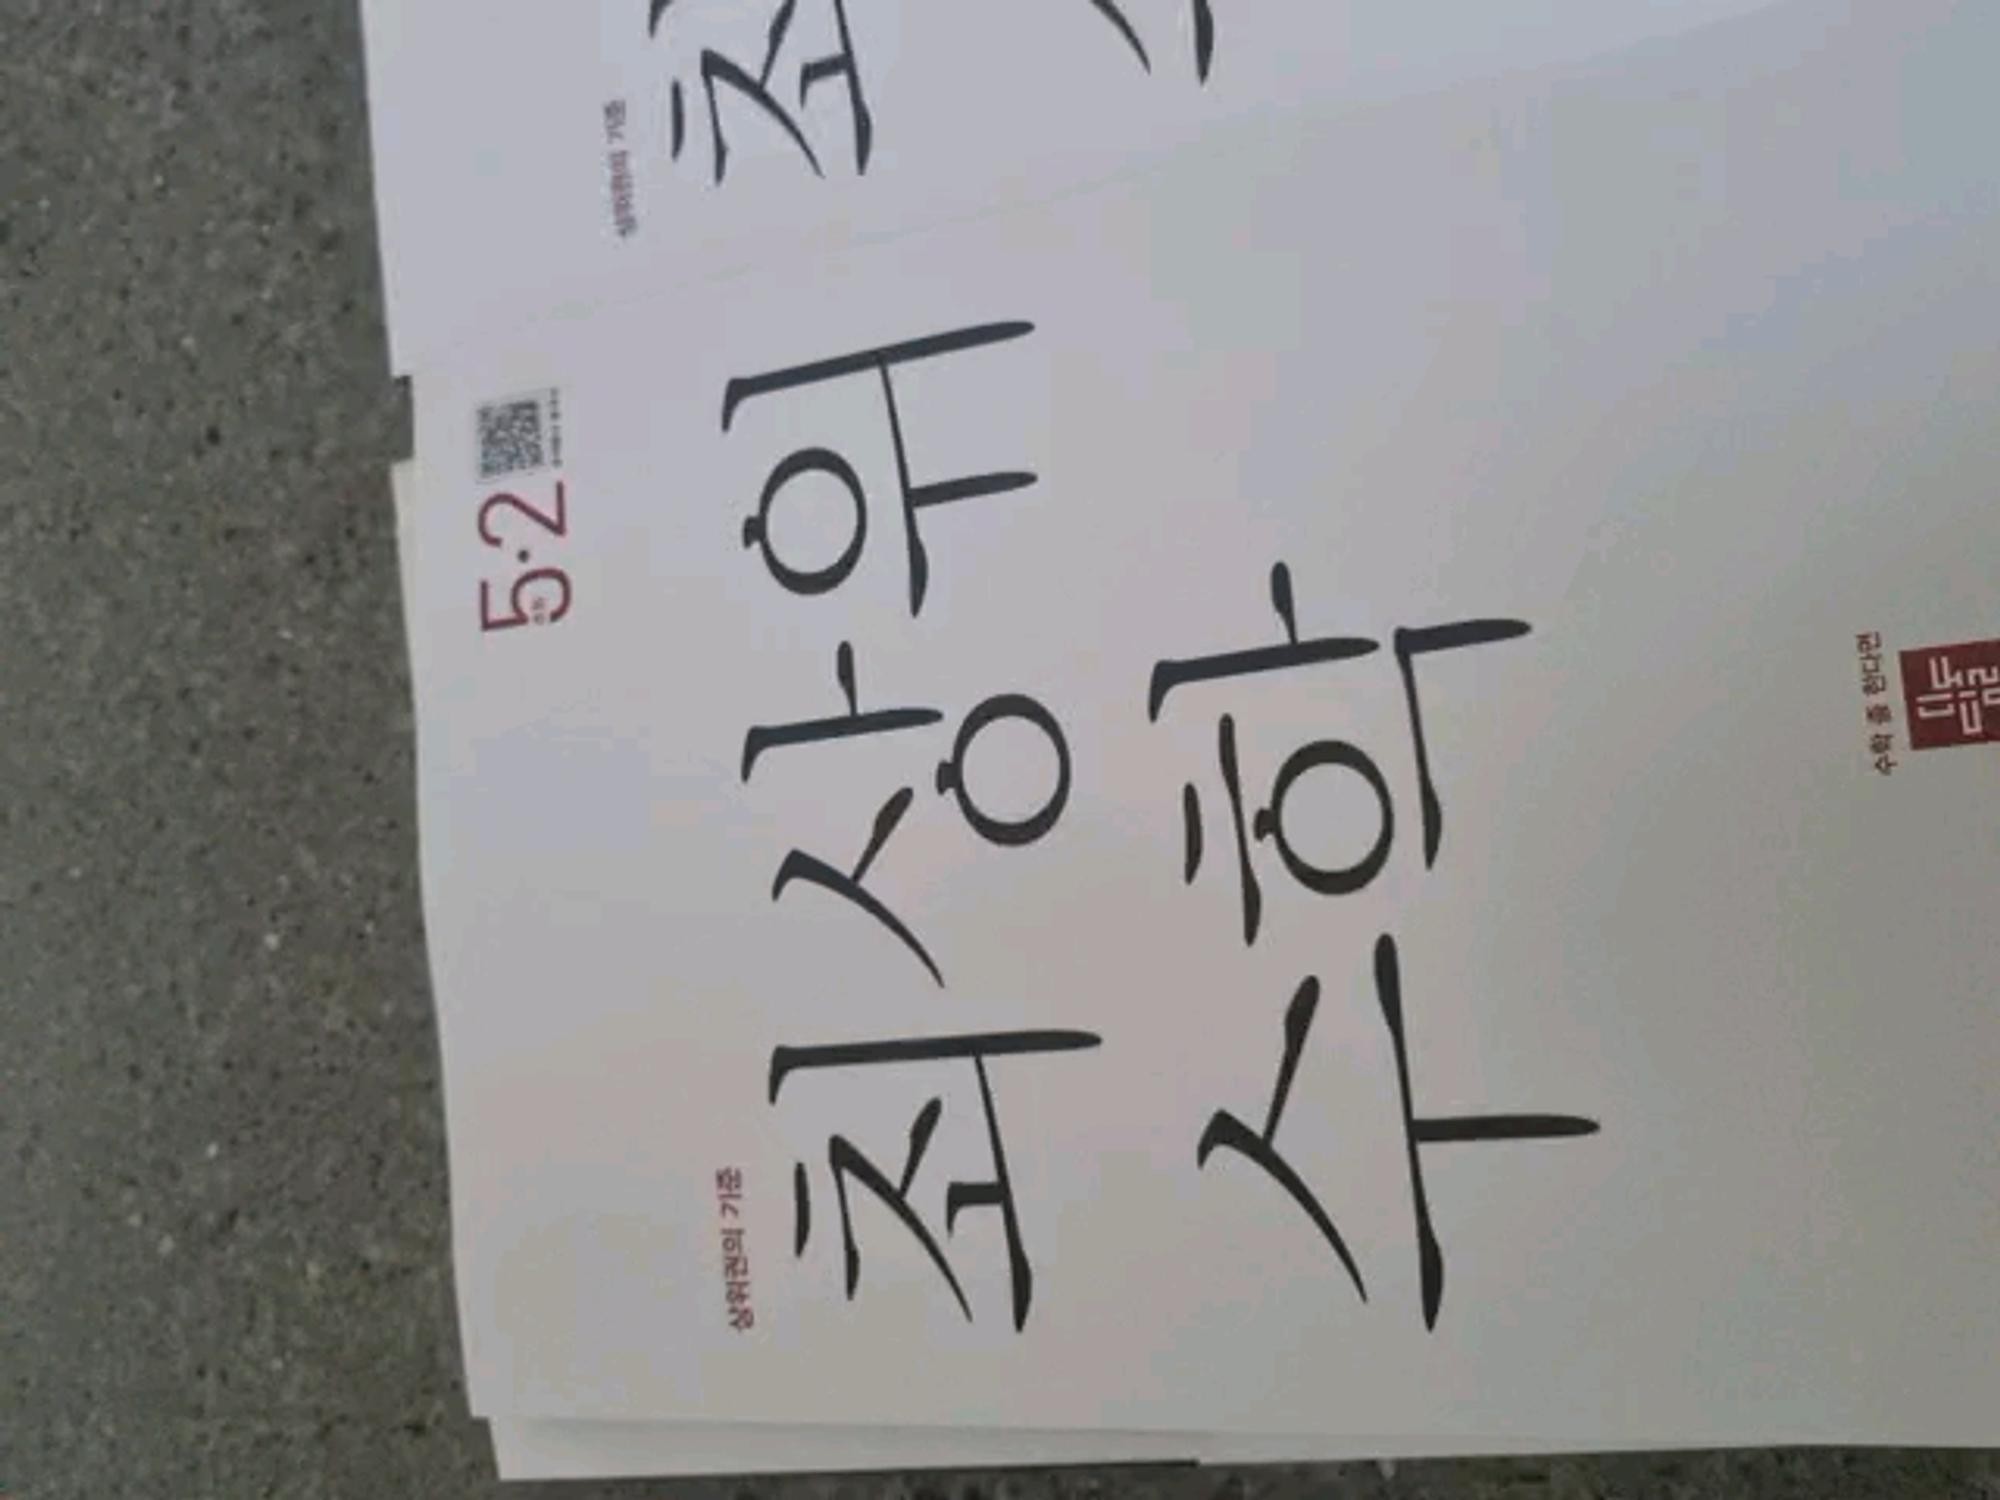 5·2
상위권의 기준
최상위
수학
수학 좀 한다면
디딤돌
상위권의 기준
최